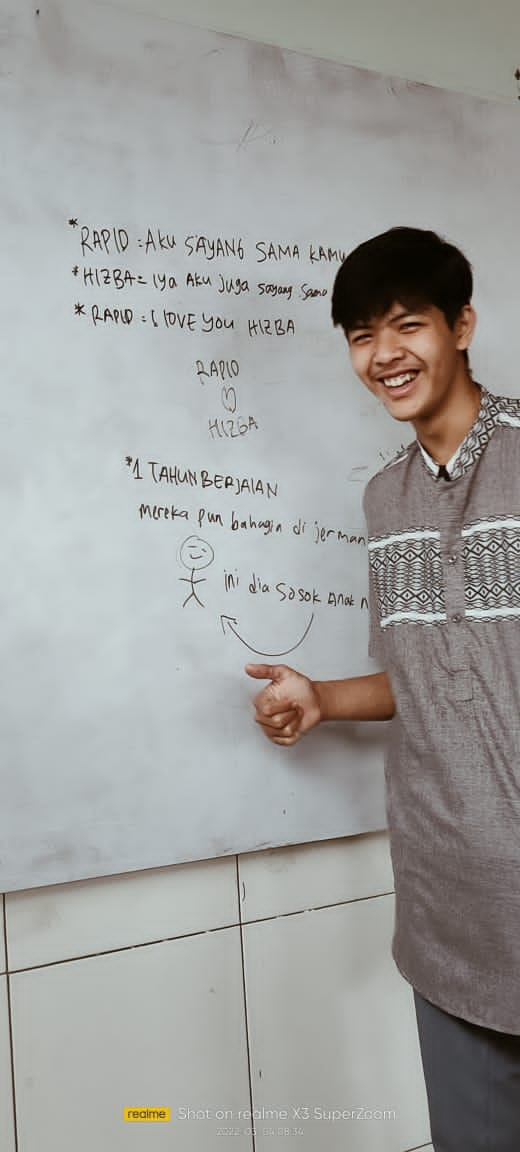 * RAPID : AKU SAYANG SAMA KAMU
* HIZBA = iya AKu juga sayang Sama
* RAPID : I lOVE you HIZBA
RAPID
HIZBA
*1 TAHUN BERJAlAN
mereka pun bahagia di jerman
ini dia sosok Anak
realme Shot on realme X3 SuperZoom
2022.03.04 08:34